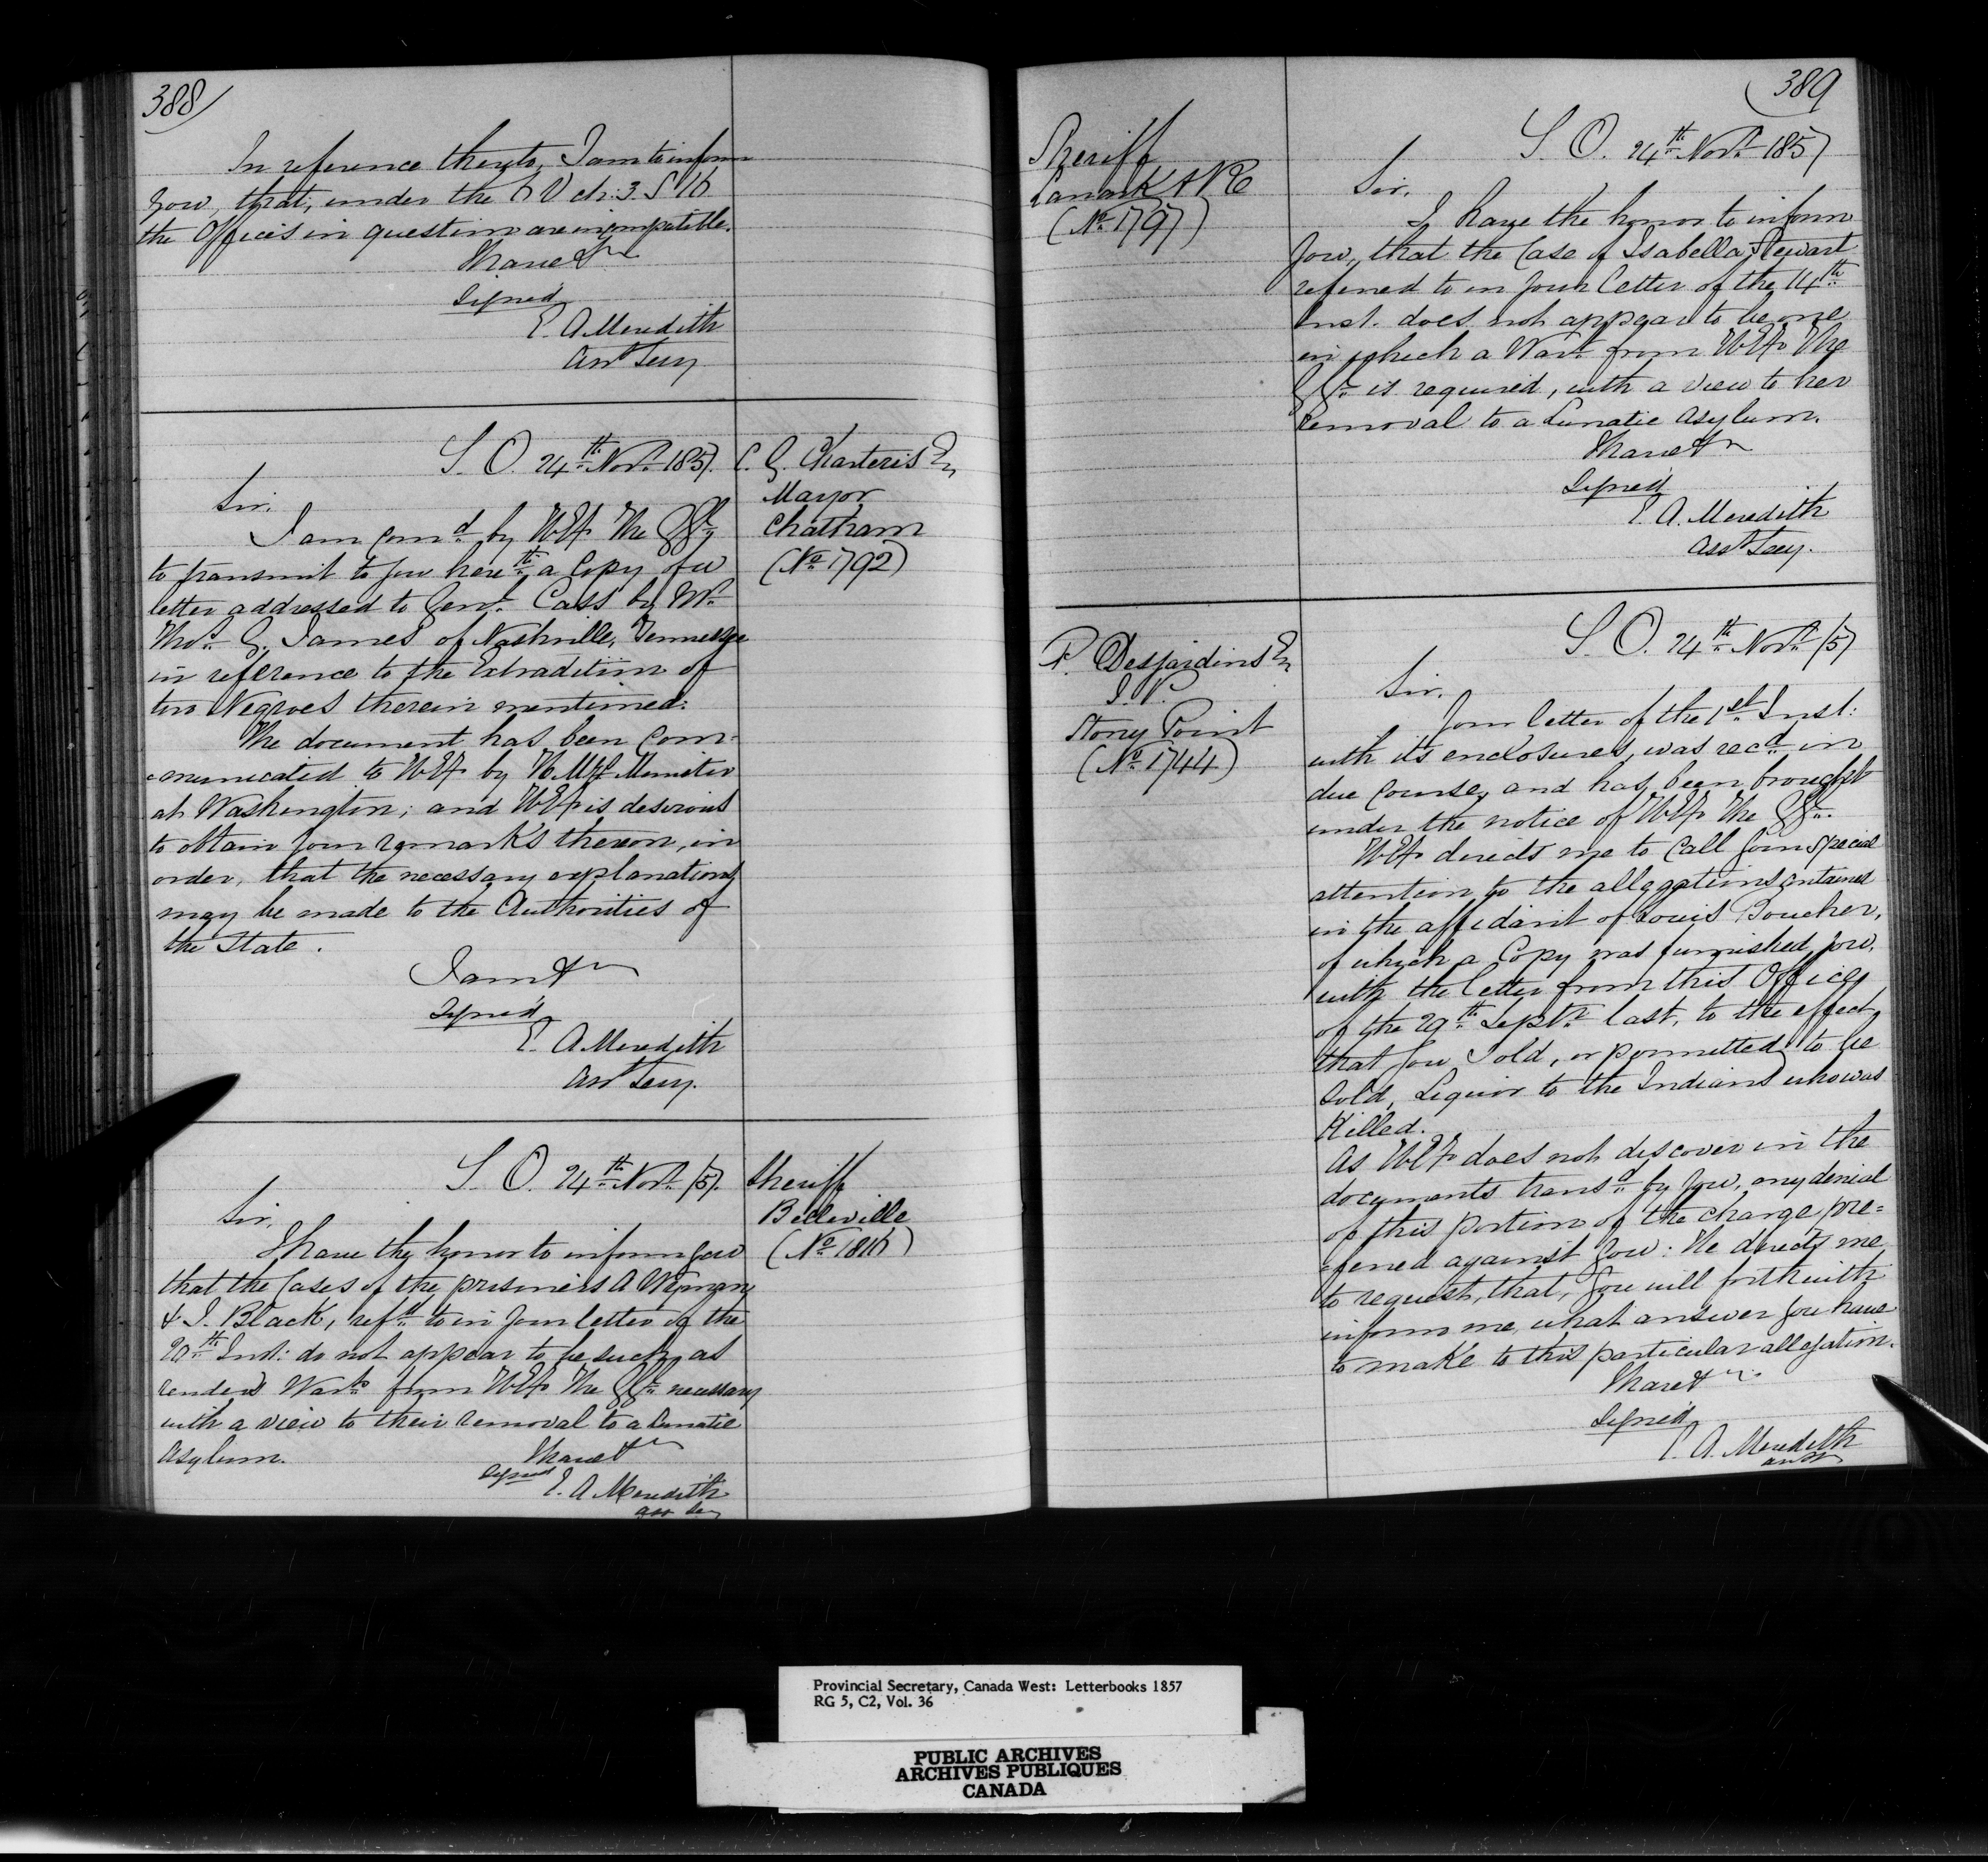 388
In reference thereto, I am to inform
You, that, under the V ch: 3. S 16
the Offices in question are incompatible.
I have &c
Signed
E. A. Meredith
Asst Secy
S. O. 24th Novr 1857.
C. G. Charteris Esq
Mayor
Chatham
(No 1792)
Sir,
I am comd by H E the GG
to transmit to you herewth a Copy of a
letter addressed to Genl Cass by Mr
Thos G. James of Nashville, Tennessee
in reference to the Extradition of
two Negroes therein mentioned.
The document has been Com=
=municated to H E by H M's Minister
at Washington; and H E is desirous
to obtain your remarks thereon, in
order, that the necessary explanations
may be made to the Authorities of
the State.
I am &c
Signed
E. A. Meredith
Asst Secy.
S. O. 24th Novr /57.
Sheriff
Belleville
(No 1816)
Sir,
I have the honor to inform you
that the Cases of the prisoners A Wegman
& J. Black, refd to in your letter of the
20th Inst: do not appear to be such, as
renders Warts from H E the GG necessary
with a view to their removal to a Lunatic
Asylum.
I have &c
Signed
E. A. Meredith
Asst Secy
389
Sheriff
Lanark & R
(No 1797)
S. O. 24th Novr 1857
Sir,
I have the honor to inform
You, that the Case of Isabella Stewart
referred to in your letter of the 14th
Inst. does not appear to be one
in which a Wart from H E The
GG is required, with a view to her
removal to a Lunatic Asylum.
I have &c
Signed
E. A. Meredith
Asst Secy.
P. Desjardins Esq
J. P.
Stony Point
(No 1744)
S. O. 24th Novr /57
Sir,
Your letter of the 1st Inst:
with its enclosures, was recd in
due Course, and has been brought
under the notice of H E The GG.
H E directs me to Call your special
attention to the allegations contained
in the affidavit of Louis Boucher,
of which a Copy was furnished you,
with the letter from this Office
of the 29th Septr last, to the effect
that you Sold, or permitted to be
Sold, Liquor to the Indians who was
Killed.
As H E does not discover in the
documents transd by you, any denial
of this portion of the charge pre=
=ferred against you: He directs me
to request, that, you will forthwith
inform me, what answer you have
to make to this particular allegation.
I have &c
Signed
E. A. Meredith
Asst
Provincial Secretary, Canada West: Letterbooks 1857
RG 5, C2, Vol. 36
PUBLIC ARCHIVES
ARCHIVES PUBLIQUES
CANADA